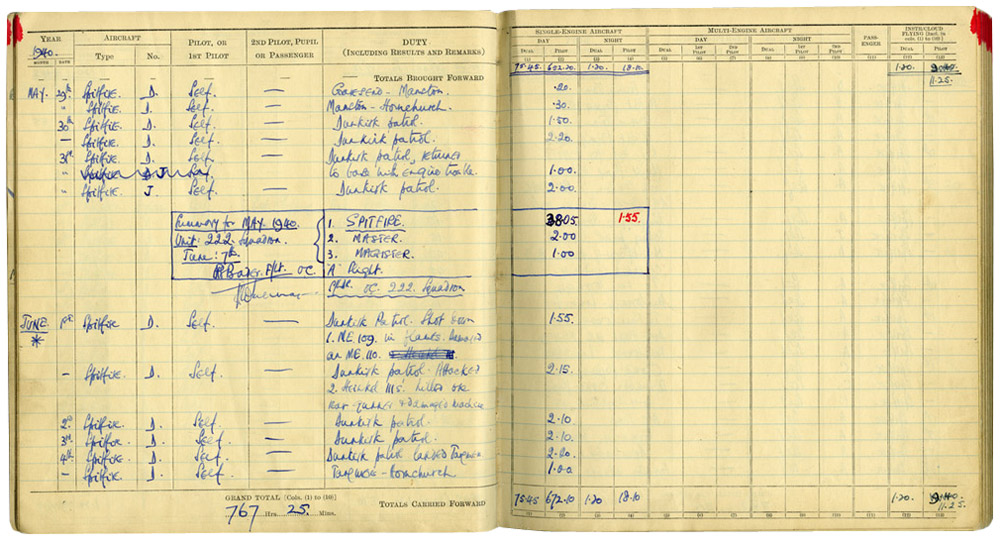 YEAR AIRCRAFT PILOT, OR 1ST PILOT 2ND PILOT, PUPIL OR PASSENGER DUTY (INCLUDING RESULTS AND REMARKS) SINGLE-ENGINE AIRCRAFT MULTI-ENGINE AIRCRAFT PASS-ENGER INSTR/CLOUD FLYING [Incl. in cols. (1) to (10)]
1940. Type No. DAY NIGHT DAY NIGHT
MONTH DATE DUAL PILOT DUAL PILOT DUAL 1ST PILOT 2ND PILOT DUAL 1ST PILOT 2ND PILOT DUAL PILOT
(1) (2) (3) (4) (5) (6) (7) (8) (9) (10) (11) (12) (13)
— — — — — — TOTALS BROUGHT FORWARD 75.45 652.20 1.20 18.10 1.20 11.25.
MAY 29th Spitfire D. Self — Gravesend - Manston. .20
" Spitfire D. Self. — Manston - Hornchurch. .30
30th Spitfire D. Self — Dunkirk patrol. 1.50
— Spitfire. D. Self. — Dunkirk patrol. 2.20
31st Spitfire. D. Self. — Dunkirk patrol, returned
" to base with engine trouble. 1.00
" Spitfire. J. Self. — Dunkirk patrol. 2.00
Summary for MAY 1940. 1. SPITFIRE. 38.05. 1.55.
Unit: 222 Squadron. 2. MASTER. 2.00
June: 7th. 3. MAGISTER. 1.00
F/Lt. O.C. 'A' Flight.
O.C. 222. Squadron
JUNE 1st Spitfire D. Self. — Dunkirk Patrol. Shot down 1.55
* 1. ME 109. in flames. Damaged
an ME. 110.
— Spitfire. D. Self — Dunkirk patrol. Attacked 2.15.
2. Heinkel 111s. killed one
rear gunner & damaged machine
2nd Spitfire. D. Self. — Dunkirk patrol. 2.10
3rd Spitfire D. Self. — Dunkirk patrol. 2.10.
4th Spitfire. D. Self. — Dunkirk patrol landed
— Spitfire D. Self. — Hornchurch 1.00
GRAND TOTAL [Cols. (1) to (10)] TOTALS CARRIED FORWARD 75.45 672.10 1.20 18.10 1.20 11.25.
767 Hrs. 25 Mins. (1) (2) (3) (4) (5) (6) (7) (8) (9) (10) (11) (12) (13)